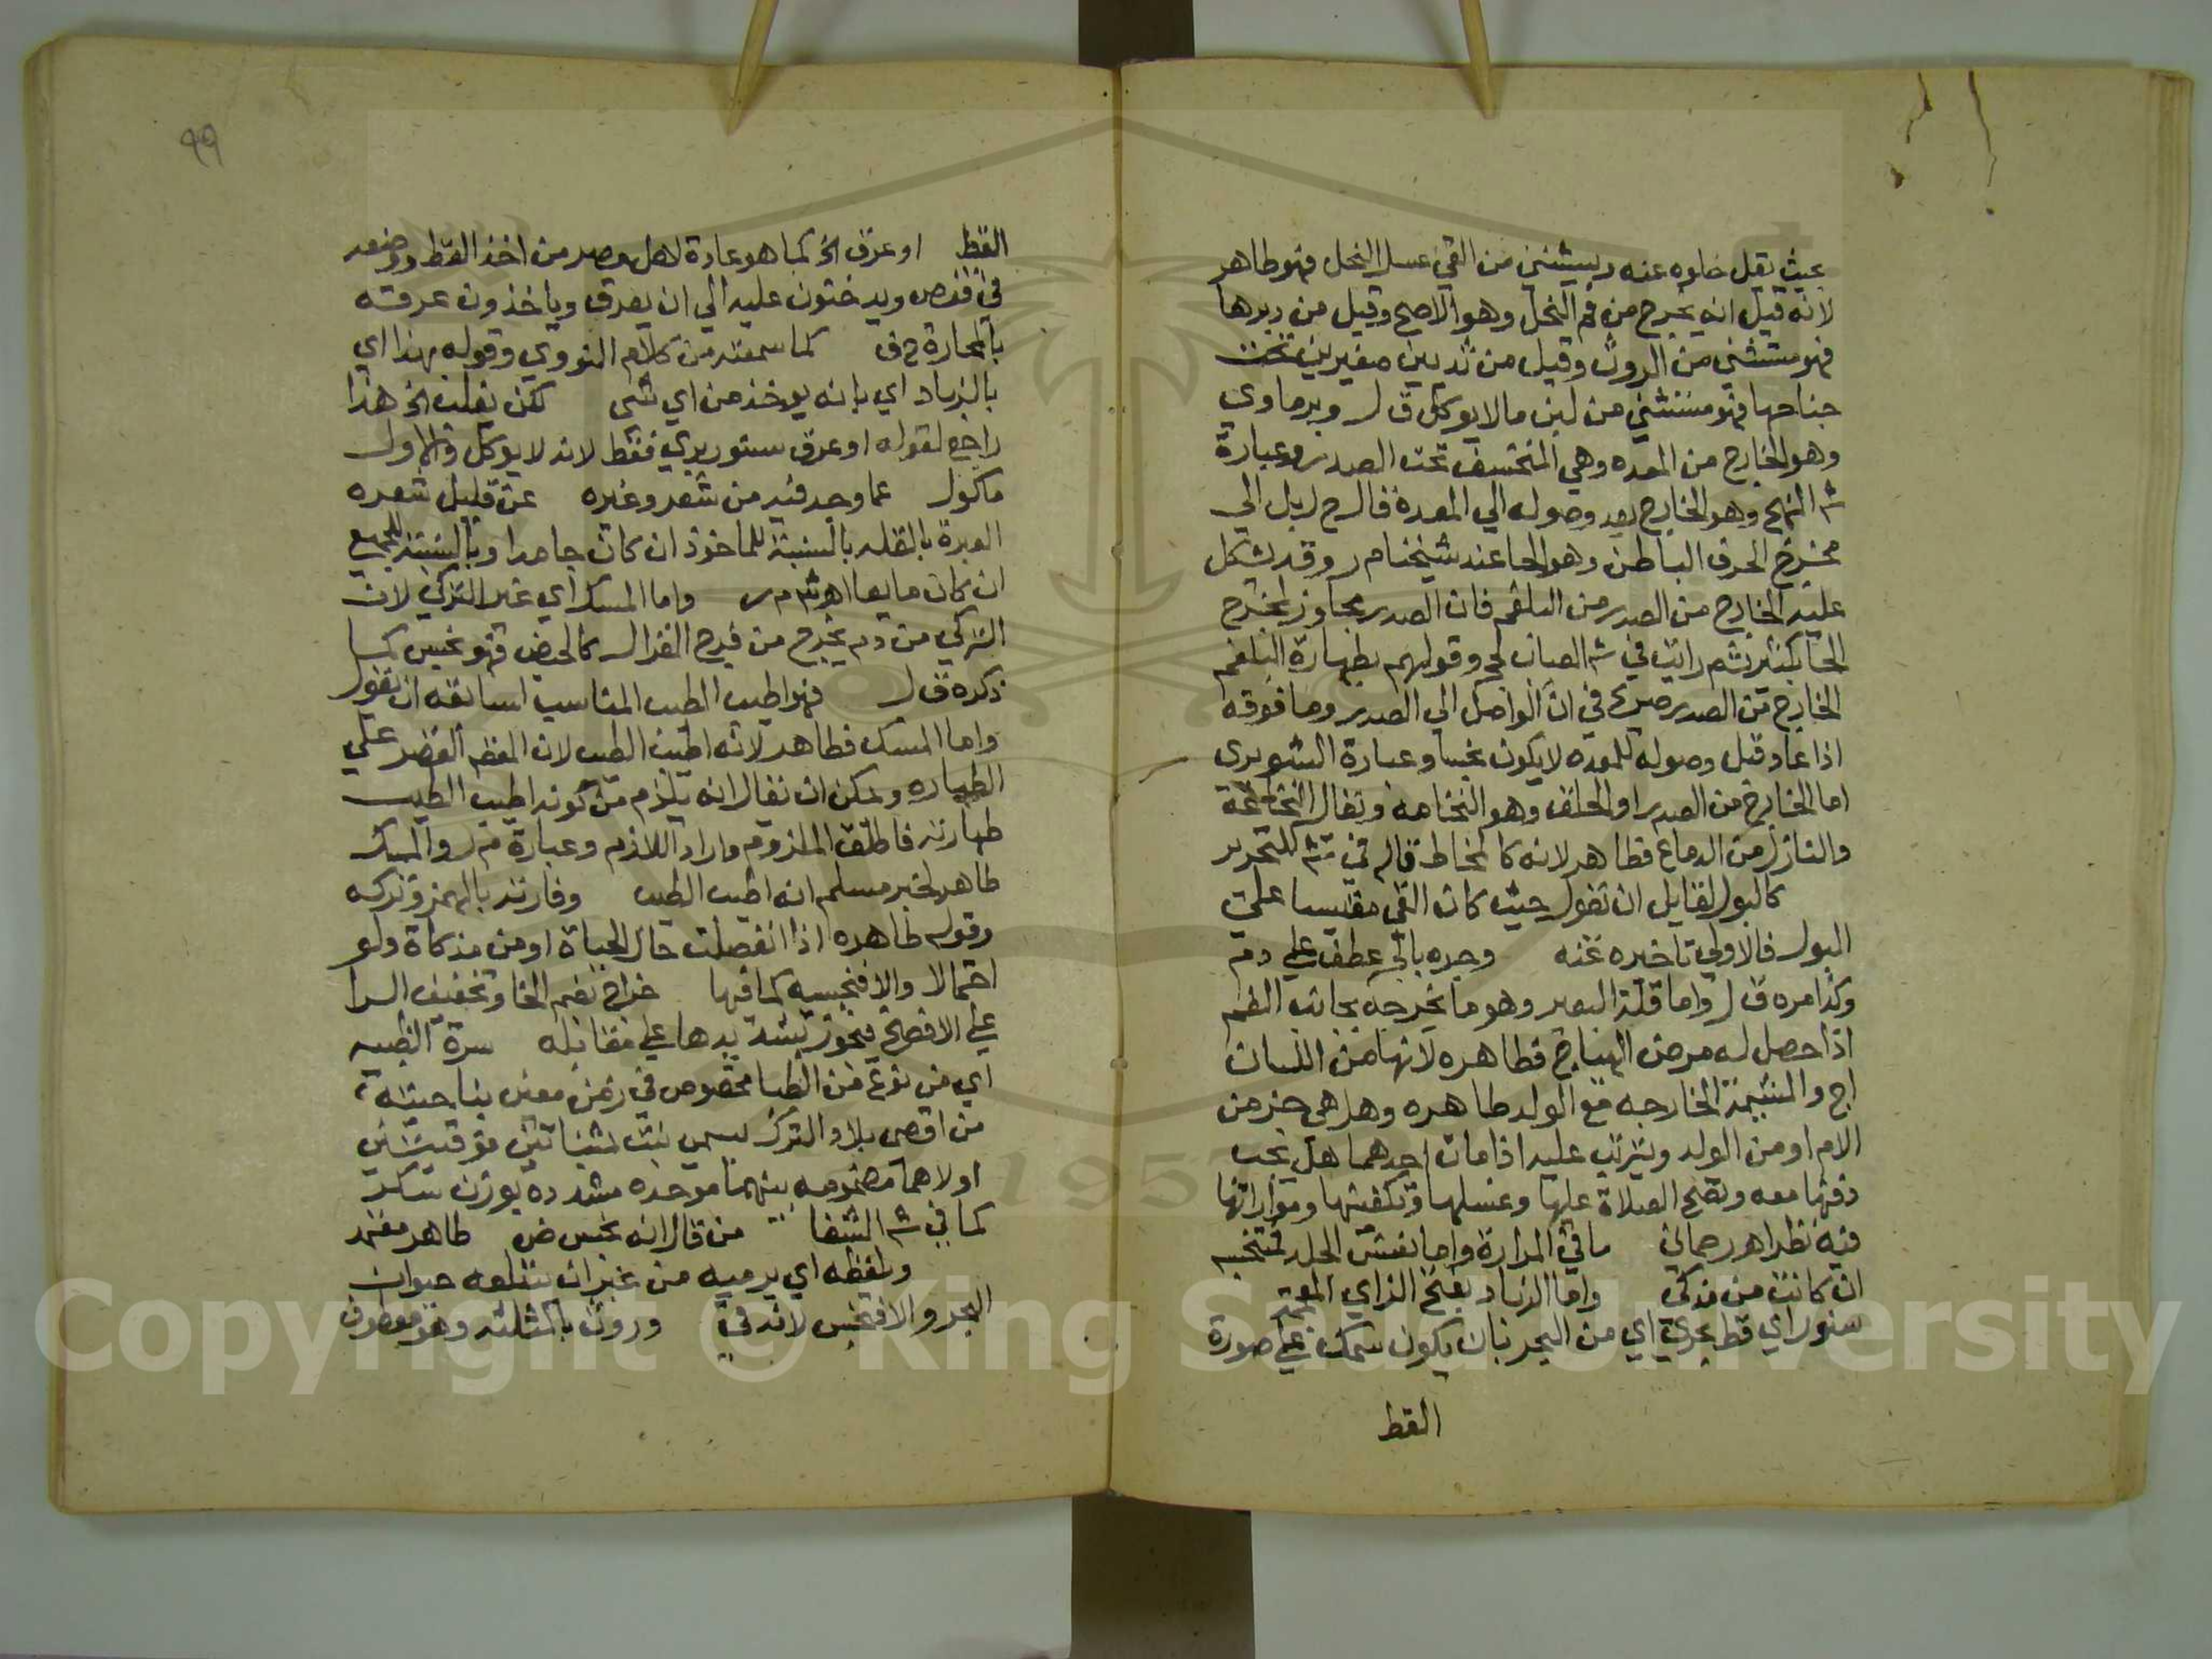 بحيث يقل خلوه عنه ويستثنى من القي عسل النحل فهو طاهر
لانه قيل انه يخرج من فم النحل وهو الاصح وقيل من دبرها
فهو مستثنى من الروث وقيل من ثديين صغيرين تحت
جناحها فهو مستثنى من لبن ما لا يوكل ق ل وبرماوي
وهو الخارج من المعده وهي المنخسف تحت الصدر وعبارة
ش النهج وهو الخارج بعد وصوله الي المعدة فالراجح لبل الي
مخرج الحرف الباطن وهو الحا عند شيخنا م ر وقد يشكل
عليه الخارج من الصدر من البلغم فان الصدر مجاوز لمخرج
الحا بكثير ثم رايت في ش العباب لحج وقولهم بطهارة البلغم
الخارج من الصدر صريح في ان الواصل الي الصدر وما فوقه
اذا عاد قبل وصوله للمعده لا يكون نجسا وعبارة الشوبري
اما الخارج من الصدر او الحلق وهو النخامه ويقال النخاعة
والنازل من الدماغ فطاهر لانه كالمخاط قاله في ش التحرير
كالبول لقايل ان تقول حيث كان القي مقيسا علي
البول فالاولي تاخيره عنه وجره بالجر عطف علي دم
وكذا مره ق ل واما قلة البعير وهو ما يخرجه بجانب الفم
اذا حصل له مرض الهياج فطاهره لانها من اللسان
اج والمشيمة الخارجه مع الولد طاهره وهل هي جز من
الام او من الولد ويترتب عليه اذا مات احدهما هل يجب
دفنها معه وتصح الصلاة عليها وغسلها وتكفينها ومواراتها
فيه نظر اهر رحماني ما في المرارة واما نفس الجلد فمتنجسه
ان كانت من مذكي واما الزباد بفتح الزاي المعجمة
سنور اي قط بحري اي من البحر بان يكون سمك علي صورة
القط
٩٩
القط او عرق الخ كما هو عادة لاهل مصر من اخذ القط ووضعه
في قفص ويدخنون عليه الي ان يعرق وياخذون عرقه
بالمحارة ح ف كما سمعته من كلام النووي وقوله بهذا اي
بالزباد اي بانه يوخذ من اي شي لكن يغلب الخ هذا
راجع لقوله او عرق سنور بري فقط لانه لا يوكل والاول
ماكول عما وجد فيه من شعر وغيره عن قليل شعره
العبرة بالقله بالنسبة للماخوذ ان كان جامدا وبالنسبة للجميع
ان كان مايعا اهر ش م ر واما المسك اي غير التركي لان
التركي من دم يخرج من فرج الغزال كالحيض فهو نجس كما
ذكره ق ل فهو اطيب الطيب المناسب لسابقه ان يقول
واما المسك فطاهر لانه اطيب الطيب لان المقام القصر علي
الطهاره ويمكن ان يقال انه يلزم من كونه اطيب الطيب
طهارته فاطلق الملزوم واراد اللازم وعبارة م ر والمسك
طاهر لخبر مسلم انه اطيب الطيب وفارته بالهمز وتركه
وقوله طاهره اذا انفصلت حال الحياة او من مذكاة ولو
احتمالا والا فنجسه كما فيها خراج بضم الخا وتخفيف الرا
علي الافصح فيجوز تشديدها علي مقابله سرة الظبيه
اي من نوع من الظبا مخصوص في زمن معين بناحيته
من اقصي بلاد الترك يسمي تبت بمثناتين فوقيتين
اولاهما مضمومه بينهما موحده مشدده بوزن سكر
كما في ش الشفا من قال انه نجس ض طاهر معتمد
ولفظه اي يرميه من غير ان يبتلعه حيوان
البحر والا فنجس لانه قي وروث بالمثلثه وهو معطوف